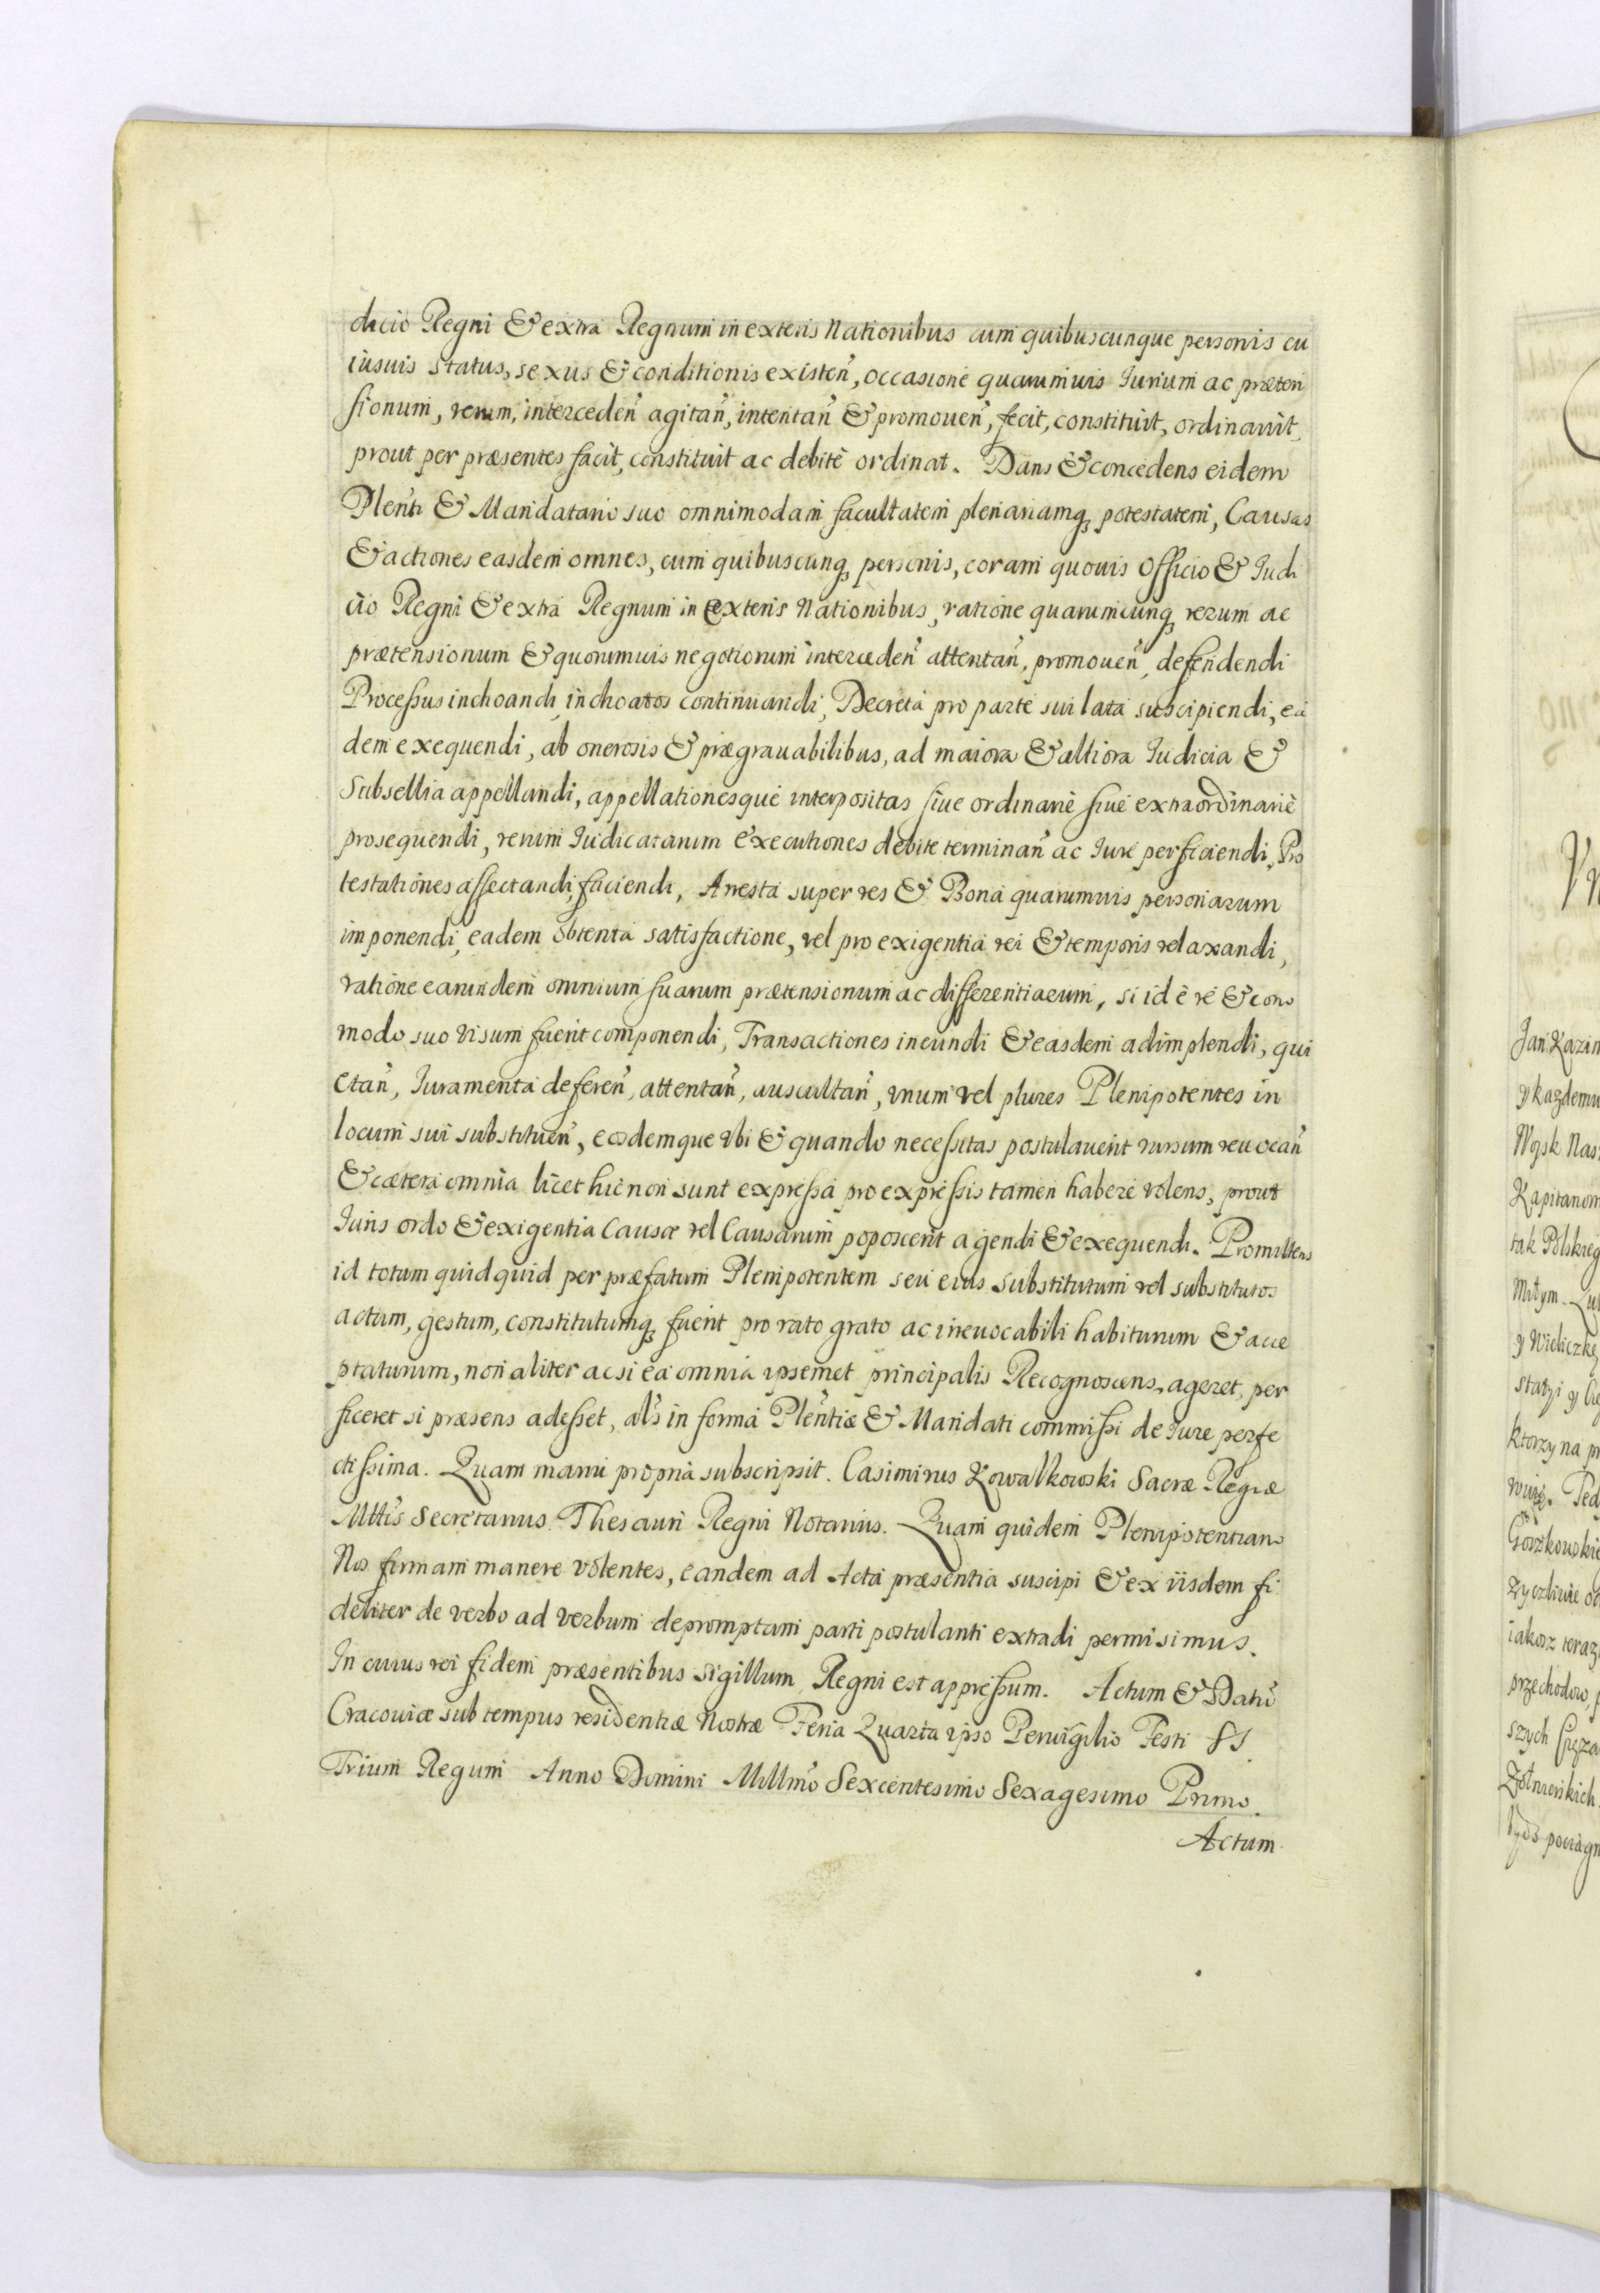 dicio Regni & extra Regnum in exteris Nationibus cum quibuscunque personis cu
iusuis status, sexus & conditionis existeñ, occasione quarumuis Iurium ac præten
sionum, rerum, intercedeñ agitañ, intentañ & promoueñ, fecit, constituit, ordinauit,
prout per præsentes facit, constituit ac debitè ordinat. Dans & concedens eidem
Pleñti & Mandatario suo omnimodam facultatem plenariamq, potestatem, Causas
& actiones easdem omnes, cum quibuscunq, personis, coram quouis Officio & Iudi
cio Regni & extra Regnum in exteris Nationibus, ratione quarumcunq, rerum ac
prætensionum & quorumuis negotiorum intercedeñ attentañ, promoueñ, defendendi
Processus inchoandi, inchoatos continuandi, Decreta pro parte sui lata suscipiendi, ea
dem exequendi, ab onerosis & prægrauabilibus, ad maiora & altiora Iudicia &
Subsellia appellandi, appellationesque interpositas siue ordinariè siue extraordinariè
prosequendi, rerum Iudicatarum executiones debite terminañ ac Iure perficiendi, Pro
testationes affectandi, faciendi, Aresta super res & Bona quarumuis personarum
imponendi, eadem obtenta satisfactione, vel pro exigentia rei & temporis relaxandi,
ratione earundem omnium suarum prætensionum ac differentiarum, si id è re & com
modo suo visum fuerit componendi, Transactiones ineundi & easdem adimplendi, qui
etañ, Iuramenta defereñ, attentañ, auscultañ, vnum vel plures Plenipotentes in
locum sui substitueñ, eosdemque vbi & quando necessitas postulauerit rursum reuocañ
& cætera omnia licet hic non sunt expressa pro expressis tamen habere volens, prout
Iuris ordo & exigentia Causæ vel Causarum poposcerit agendi & exequendi. Promittens
id totum quidquid per præfatum Plenipotentem seu eius substitutum vel substitutos
actum, gestum, constitutumq, fuerit pro rato grato ac irreuocabili habiturum & acce
ptaturum, non aliter ac si ea omnia ipsemet principalis Recognoscens, ageret, per
ficeret si præsens adesset, als in forma Pleñtiæ & Mandati commissi de Iure perfe
ctissima. Quam manu propria subscripsit. Casimirus Kowalkowski Sacræ Regiæ
Mttis Secretarius Thesauri Regni Notarius. Quam quidem Plenipotentiam
Nos firmam manere volentes, eandem ad Acta præsentia suscipi & ex iisdem fi
deliter de verbo ad verbum depromptam parti postulanti extradi permisimus.
In cuius rei fidem præsentibus sigillum Regni est appressum. Actum & Datũ
Cracouiæ sub tempus residentiæ Nostræ Feria Quarta ipso Peruigilio Festi SS
Trium Regum Anno Domini Millmo Sexcentesimo Sexagesimo Primo.
Actum
Jan Kazim
y kazdemu
Woysk Nas
Kapitanom
tak Polskieg
miłym.
y Wieliczkę
statyi y
ktorzy na p
Gorzkowskie
zyczliwie
iakosz teraz
przechodow
szych
Zołnierskich